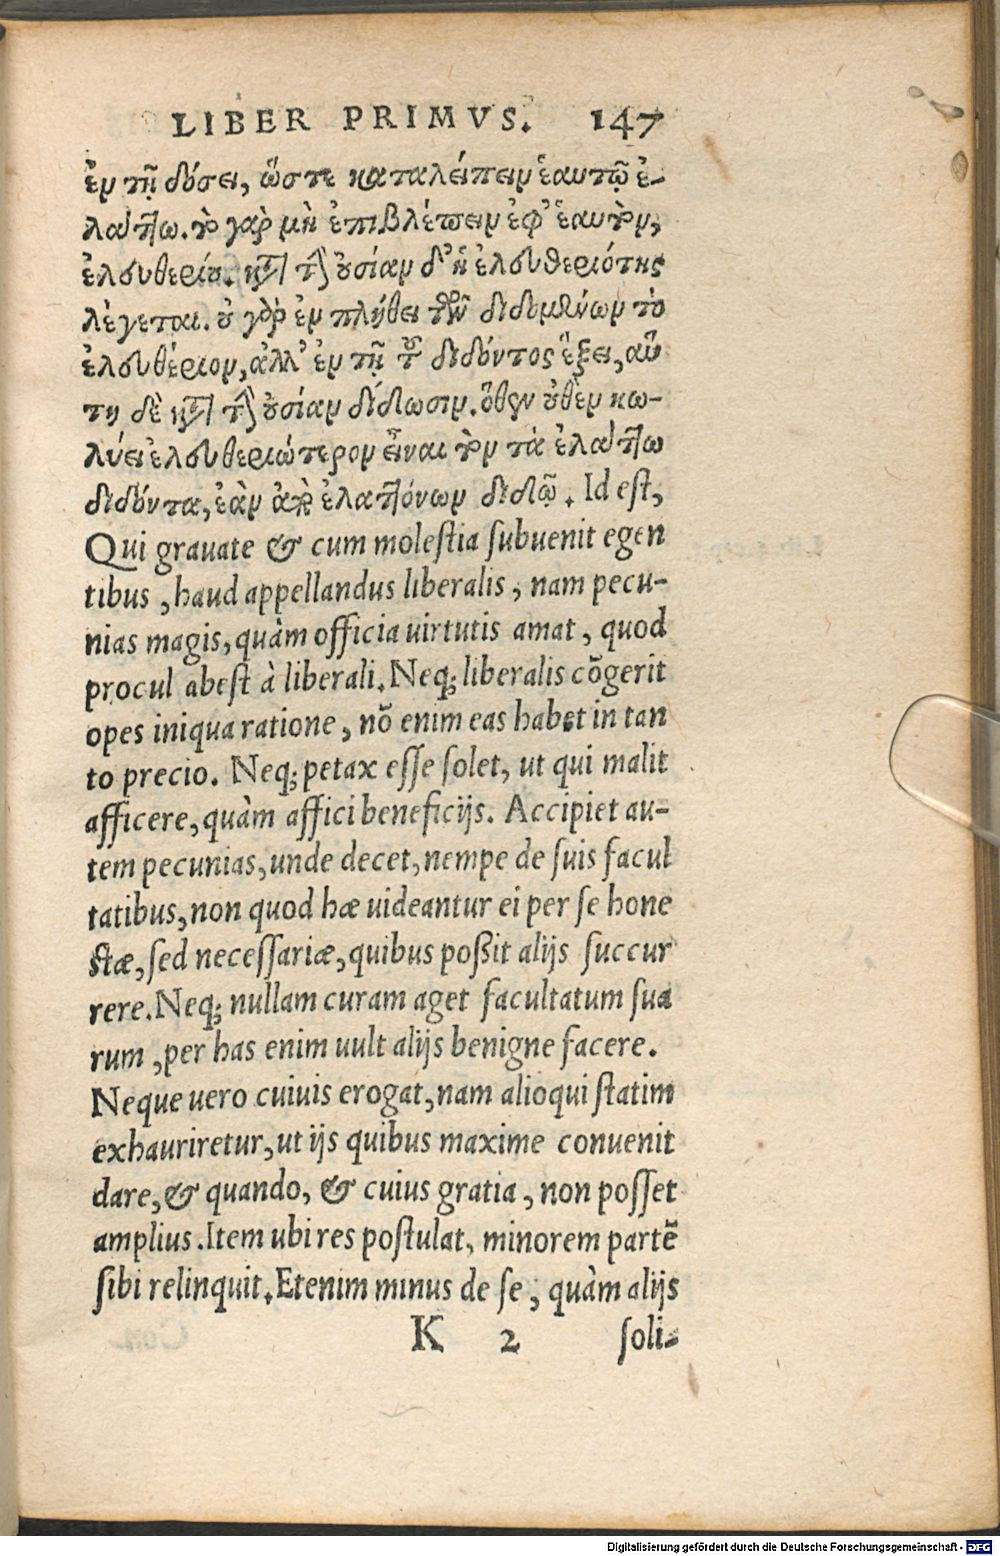 LIBER PRIMVS. 147
ἐν τῇ δόσει, ὥστε καταλείπειν ἑαυτῷ ἐ-
λάττω. τὸ γὰρ μὴ ἐπιβλέπειν ἐφ' ἑαυτὸν,
ἐλευθερίου. κατὰ τὴν οὐσίαν δ' ἡ ἐλευθεριότης
λέγεται. οὐ γὰρ ἐν πλήθει τῶν διδομένων τὸ
ἐλευθέριον, ἀλλ' ἐν τῇ τοῦ διδόντος ἕξει, αὕ
τη δὲ κατὰ τὴν οὐσίαν δίδωσιν. ὅθεν οὐθὲν κω-
λύει ἐλευθεριώτερον εἶναι τὸν τὰ ἐλάττω
διδόντα, ἐὰν ἀπ' ἐλαττόνων διδῷ. Id est,
Qui grauate & cum molestia subuenit egen
tibus, haud appellandus liberalis, nam pecu-
nias magis, quàm officia uirtutis amat, quod
procul abest à liberali. Neq; liberalis cõgerit
opes iniqua ratione, nõ enim eas habet in tan
to precio. Neq; petax esse solet, ut qui malit
afficere, quàm affici beneficijs. Accipiet au-
tem pecunias, unde decet, nempe de suis facul
tatibus, non quod hæ uideantur ei per se hone
stæ, sed necessariæ, quibus poßit alijs succur
rere. Neq; nullam curam aget facultatum sua
rum, per has enim uult alijs benigne facere.
Neque uero cuiuis erogat, nam alioqui statim
exhauriretur, ut ijs quibus maxime conuenit
dare, & quando, & cuius gratia, non posset
amplius. Item ubi res postulat, minorem partẽ
sibi relinquit. Etenim minus de se, quàm alijs
K 2 soli-
Digitalisierung gefördert durch die Deutsche Forschungsgemeinschaft - DFG